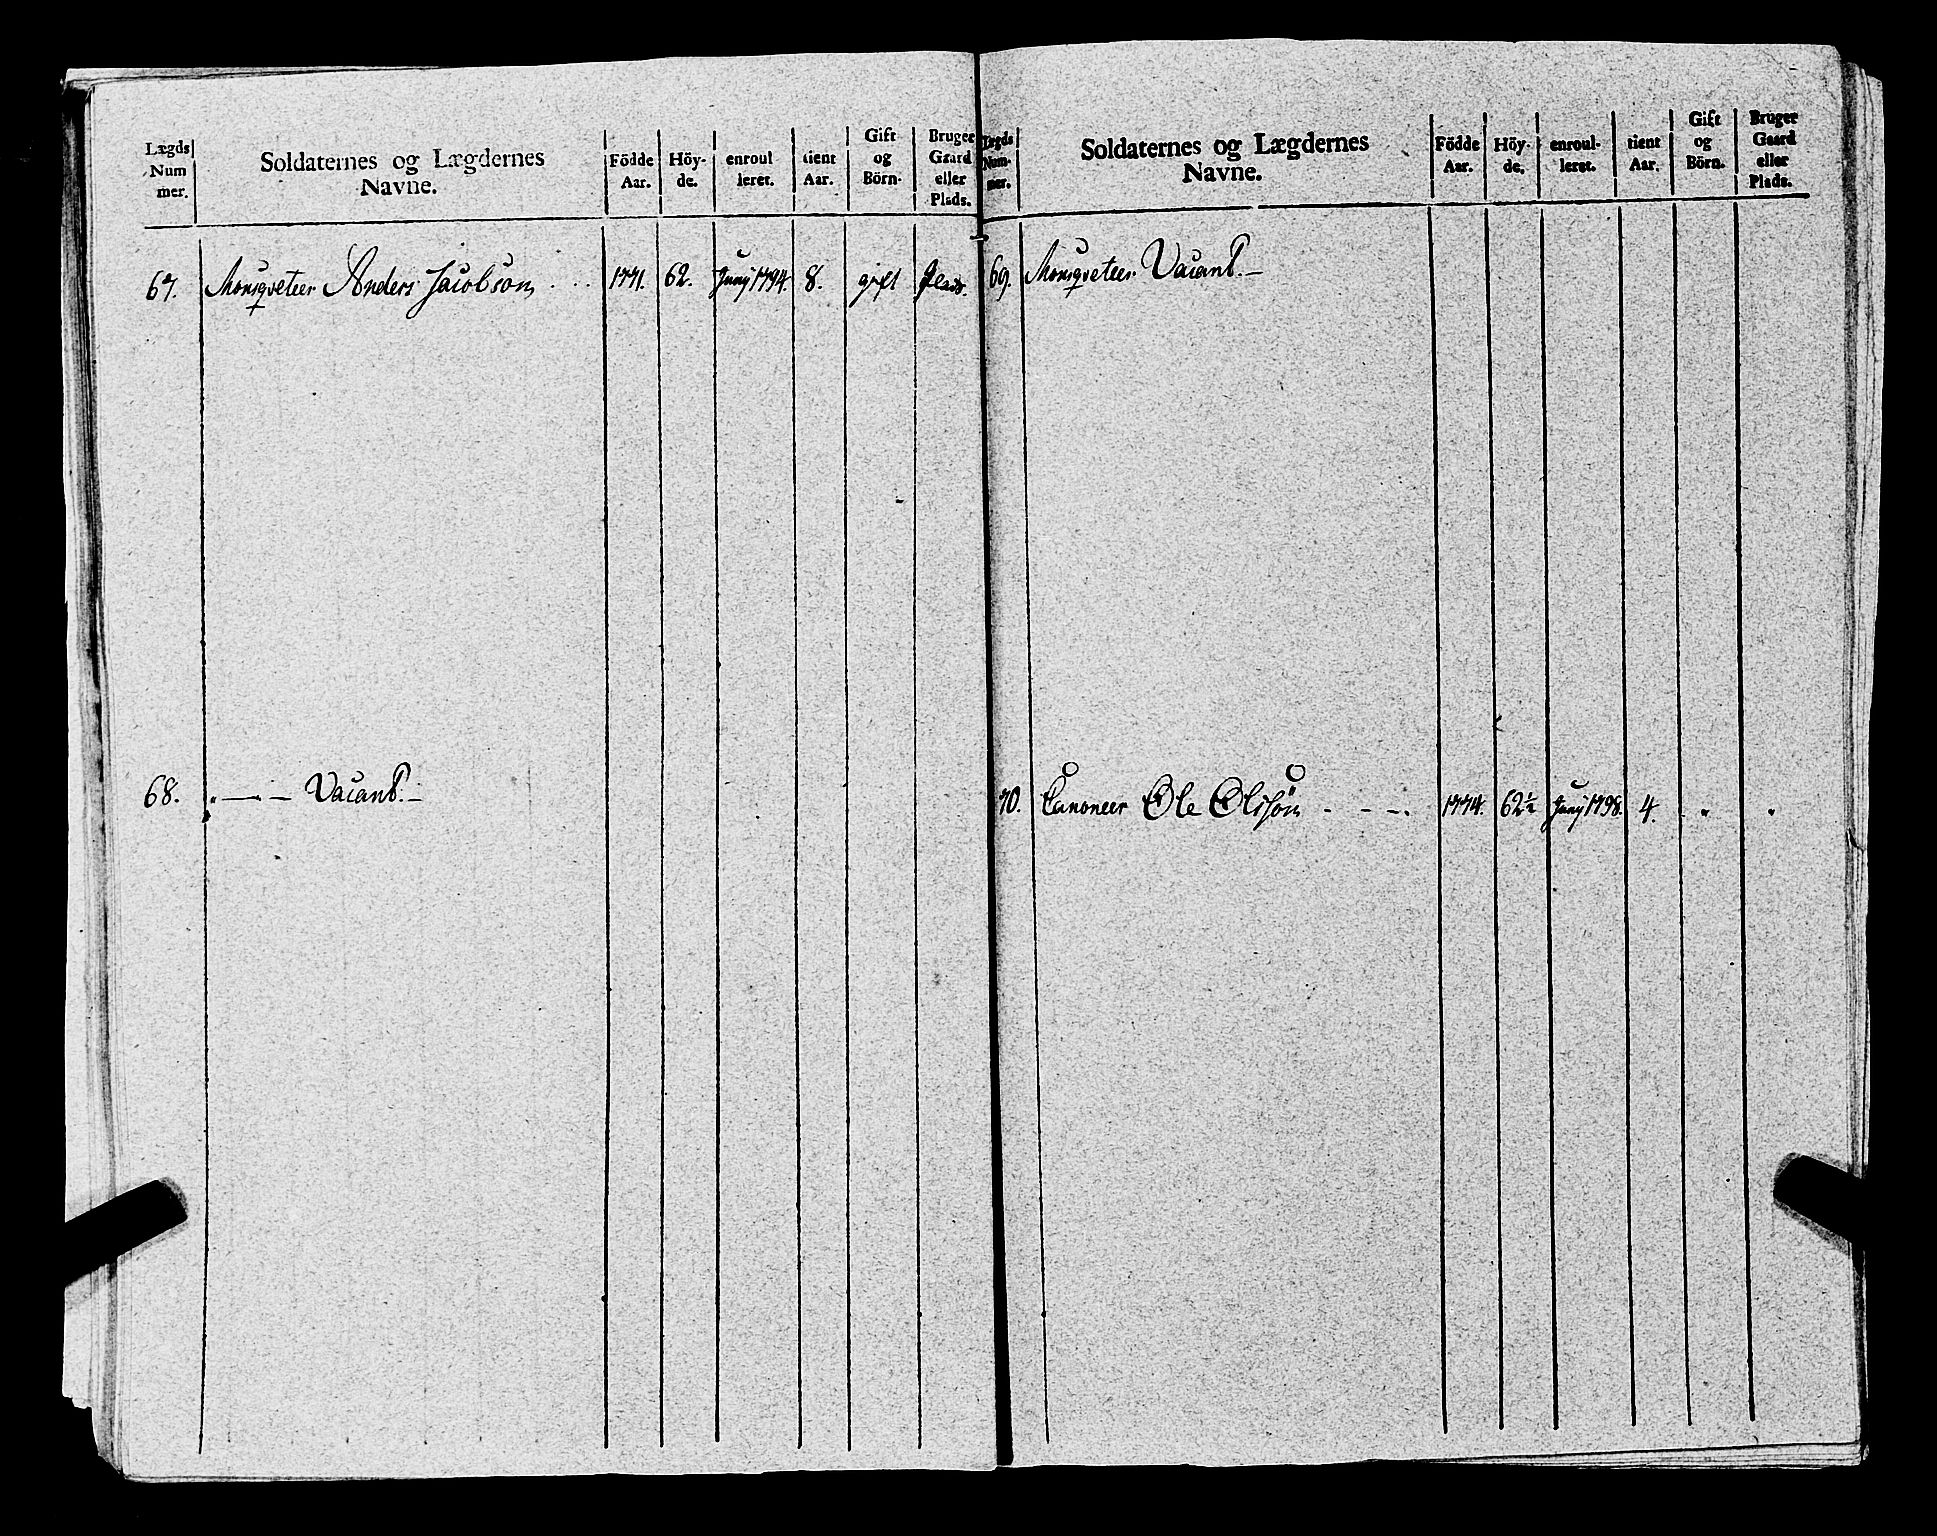 Lægds Num mer. | Soldaternes og Lægdernes Navne. | Födde Aar. | Höy- de. | enroul leret. | tient Aar. | Gift og Börn. | Bruger Gaard eller Plads.
67. Mousqveteer Anders Jacobsøn . . . 1771. 62. Junj 1794. 8. gift Plads.
68. " — " — Vacant. —
Lægds Num- mer. | Soldaternes og Lægdernes Navne. | Födde Aar. | Höy- de. | enroul- leret. | tient Aar. | Gift og Börn. | Bruger Gaard eller Plads.
69. Mousqveteer Vacant. —
70. Canoneer Ole Olssøn - - - - 1774. 62½ Junj 1798. 4. " "